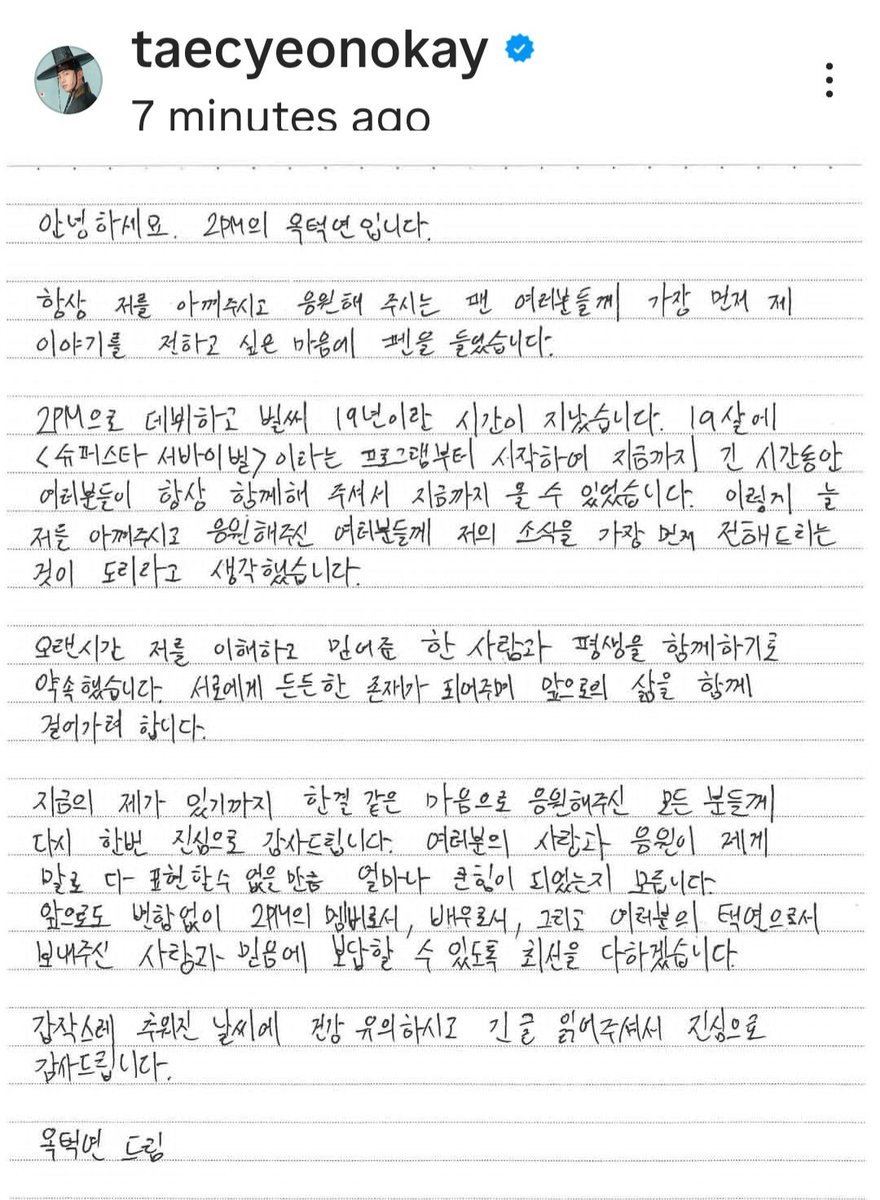 taecyeonokay
7 minutes ago
안녕하세요. 2PM의 옥택연입니다.
항상 저를 아껴주시고 응원해 주시는 팬 여러분들께 가장 먼저 제
이야기를 전하고 싶은 마음에 펜을 들었습니다.
2PM으로 데뷔하고 벌써 19년이란 시간이 지났습니다. 19살에
<슈퍼스타 서바이벌>이라는 프로그램부터 시작하여 지금까지 긴 시간동안
여러분들이 항상 함께해 주셔서 지금까지 올 수 있었습니다. 이렇게 늘
저를 아껴주시고 응원해주신 여러분들께 저의 소식을 가장 먼저 전해드리는
것이 도리라고 생각했습니다.
오랜시간 저를 이해하고 믿어준 한 사람과 평생을 함께하기로
약속했습니다. 서로에게 든든한 존재가 되어주며 앞으로의 삶을 함께
걸어가려 합니다.
지금의 제가 있기까지 한결 같은 마음으로 응원해주신 모든 분들께
다시 한번 진심으로 감사드립니다. 여러분의 사랑과 응원이 제게
말로 다 표현할수 없을만큼 얼마나 큰힘이 되었는지 모릅니다.
앞으로도 변함없이 2PM의 멤버로서, 배우로서, 그리고 여러분의 택연으로서
보내주신 사랑과 믿음에 보답할 수 있도록 최선을 다하겠습니다.
갑작스레 추워진 날씨에 건강 유의하시고 긴 글 읽어주셔서 진심으로
감사드립니다.
옥택연 드림